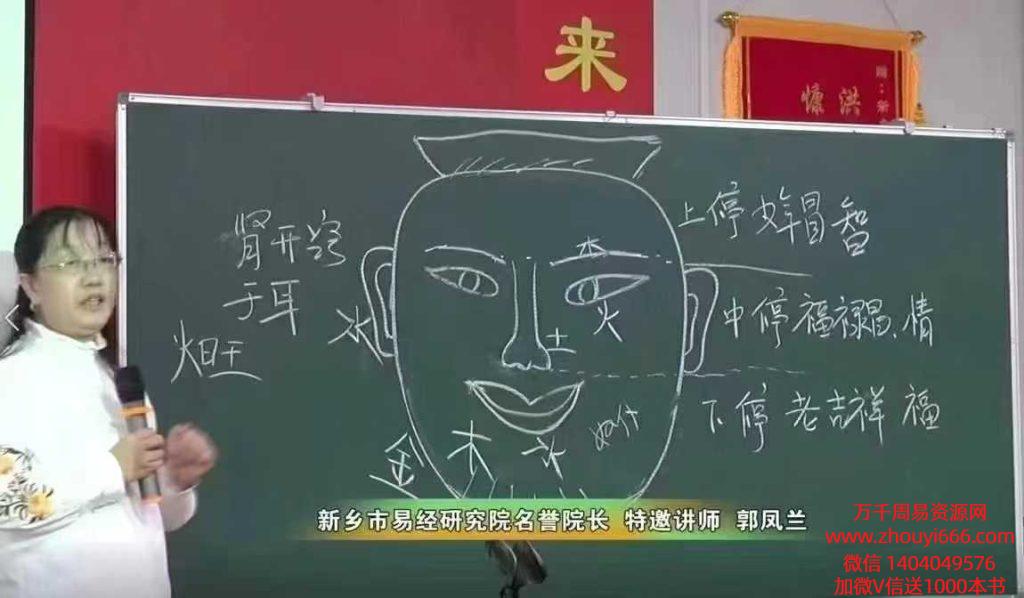 来
洪
慷
肾开窍
于耳
水
火旺
木
火
土
金
水
上停 少年冒智
中停 福禄昌、情
下停 老吉祥 福
新乡市易经研究院名誉院长 特邀讲师 郭凤兰
万千周易资源网
www.zhouyi666.com
微信 1404049576
加微V信送1000本书